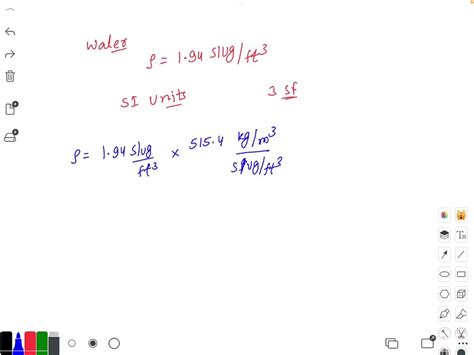 Water
ρ = 1.94 slug/ft³
SI units 3 sf
ρ = 1.94 slug/ft³ × 515.4 kg/m³ / slug/ft³
Tu